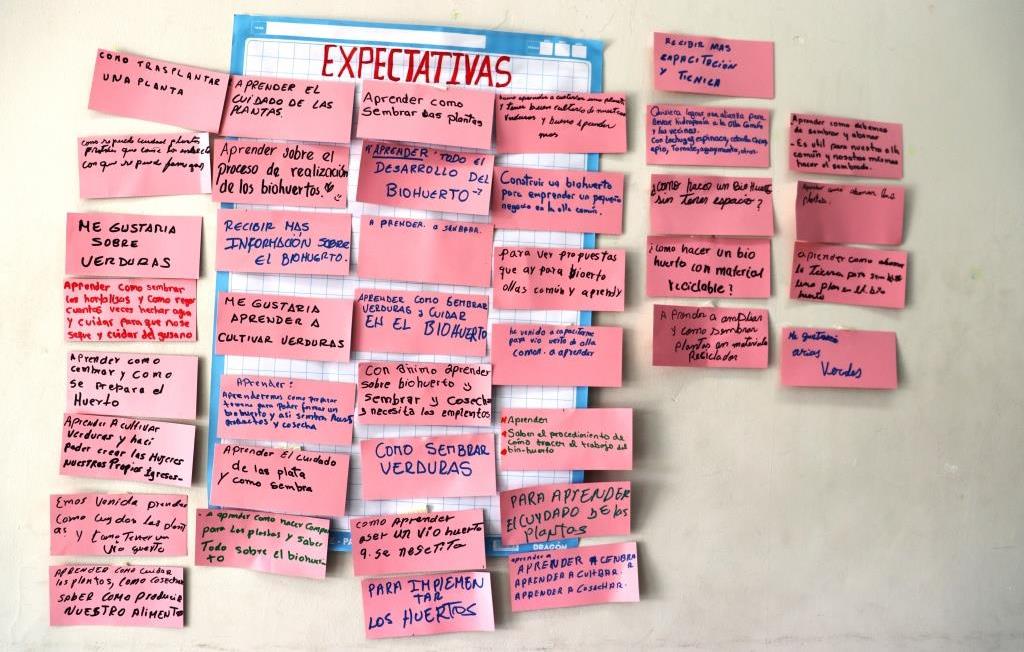 EXPECTATIVAS
COMO TRASPLANTAR
UNA PLANTA
ME GUSTARIA
SOBRE
VERDURAS
Aprender como sembrar
los hortalisas y como regar
cuantos veces hechar agua
y cuidar para que no se
seque y cuidar del gusano
Aprender como
sembrar y como
se prepara el
Huerto
Aprender A cultivar
Verduras y haci
poder crear las Mujeres
NUESTROS Propios Igresos-
Emos Venida prender
y Como Tener un
Vio guerto
APRENDER como cuidar
los plantas, como cosechar
SABER COMO producir
NUESTRO ALIMENTO
APRENDER EL
CUIDADO DE LAS
PLANTAS.
Aprender sobre el
proceso de realización
de los biohuertos.
RECIBIR MAS
INFORMACIÓN SOBRE
EL BIOHUERTO.
ME GUSTARIA
APRENDER A
CULTIVAR VERDURAS
Aprender:
Aprenderemos como preparar
para Poder formar un
biohuerto y asi sembrar
productos y cosecha
Aprender El Cuidado
de las plata
y como sembra
a aprender como hacer
para Los plantas y saber
Todo sobre el biohuer
to
Aprender como
sembrar las plantas
"APRENDER TODO EL
DESARROLLO DEL
BIOHUERTO"
A PRENDER. a SEMBRAR.
APRENDER COMO SEMBRAR
VERDURAS y CUIDAR
EN EL BIOHUERTO
CON Animo aprender
sobre biohuerto y
sembrar y Cosecha
COMO SEMBRAR
VERDURAS
COMO Aprender
aser un vio huerto
q. se nesetita
PARA IMPLEMEN
TAR
LOS HUERTOS
Construir un biohuerto
para emprender un pequeño
negocio en la olla común.
para ver propuestas
que ay para
ollas común y aprendy
he venido a capacitarme
para vio verto de olla
comun. a aprender
Aprender
Saber el procedimiento de
como tracer el trabajo del
bio-huerto
PARA APRENDER
El CUYDADO DE los
plantas
aprender a
APRENDER A CENBRAR
APRENDER A CULTIBAR.
APRENDER A COSECHAR.
DRAGÓN
RECIBIR MAS
CAPACITACIÓN
Y TECNICA
Quisiera lograr una alianza para
llevar hidroponia a la Olla Común
y las vecinas.
¿Como hacer un Bio Huerto
sin tener espacio?
¿Como hacer un bio
huerto con material
reciclable?
A Prender a ampliar
y como sembrar
plantas en materiales
Reciclados
Aprender como debemos
de sembrar y abonar
- Es util para nuestra olla
común y nosotras mismas
hacer el sembrado.
aprender como abonar
la tierra para sembrar
una planta en el bio
huerto
Me gustaria
Verdes